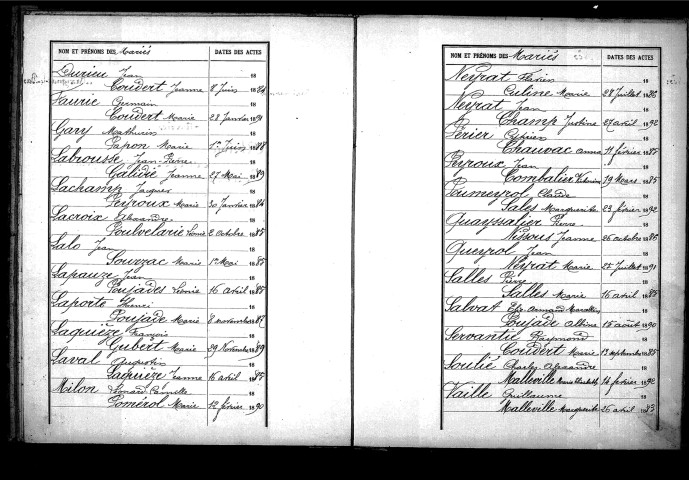 NOM ET PRÉNOMS DES Mariés DATES DES ACTES
Durieu Jean 18
Coudert Jeanne 8 Juin 1884
Faurie Germain 18
Coudert Marie 28 Janvier 1891
Gary Mathurin 18
Papon Marie 1er Juin 1888
Labrousse Jean Pierre 18
Galidie Jeanne 27 Mai 1889
Lachamp Jacques 18
Peyroux Marie 30 Janvier 1884
Lacroix Alexandre 18
Poulvelarie Léonie 2 octobre 1885
Lalo Jean 18
Souvzac Marie 1er Mai 1885
Lapauze Jean 18
Poujades Léonie 16 avril 1885
Laporte Henri 18
Poujade Marie 8 novembre 1887
Laquièze François 18
Gubert Marie 29 Novembre 1889
Laval Augustin 18
Laquièze Jeanne 16 avril 1885
Milon Léonard Camille 18
Pomérol Marie 12 février 1890
NOM ET PRÉNOMS DES Mariés DATES DES ACTES
Neyrat 18
Culine Marie 28 Juillet 1886
Neyrat Jean 18
Champ Justine 27 avril 1892
Périer 18
Chauvac Anna 11 février 1885
Peyroux Jean 18
Combalier 19 Mars 1885
Pumeyrol Claude 18
Sales Marguerite 23 février 1892
Quayssalier Pierre 18
Nissous Jeanne 26 octobre 1886
Queyrol Jean 18
Neyrat Marie 25 Juillet 1891
Salles Pierre 18
Salles Marie 16 avril 1885
Salvat Armand 18
Poujade Albine 18 août 1890
Servantie Raymond 18
Coudert Marie 13 septembre 1885
Soulié Charles Alexandre 18
Malleville Marie Elisabeth 14 février 1892
Vaille Guillaume 18
Malleville Marguerite 26 avril 1883